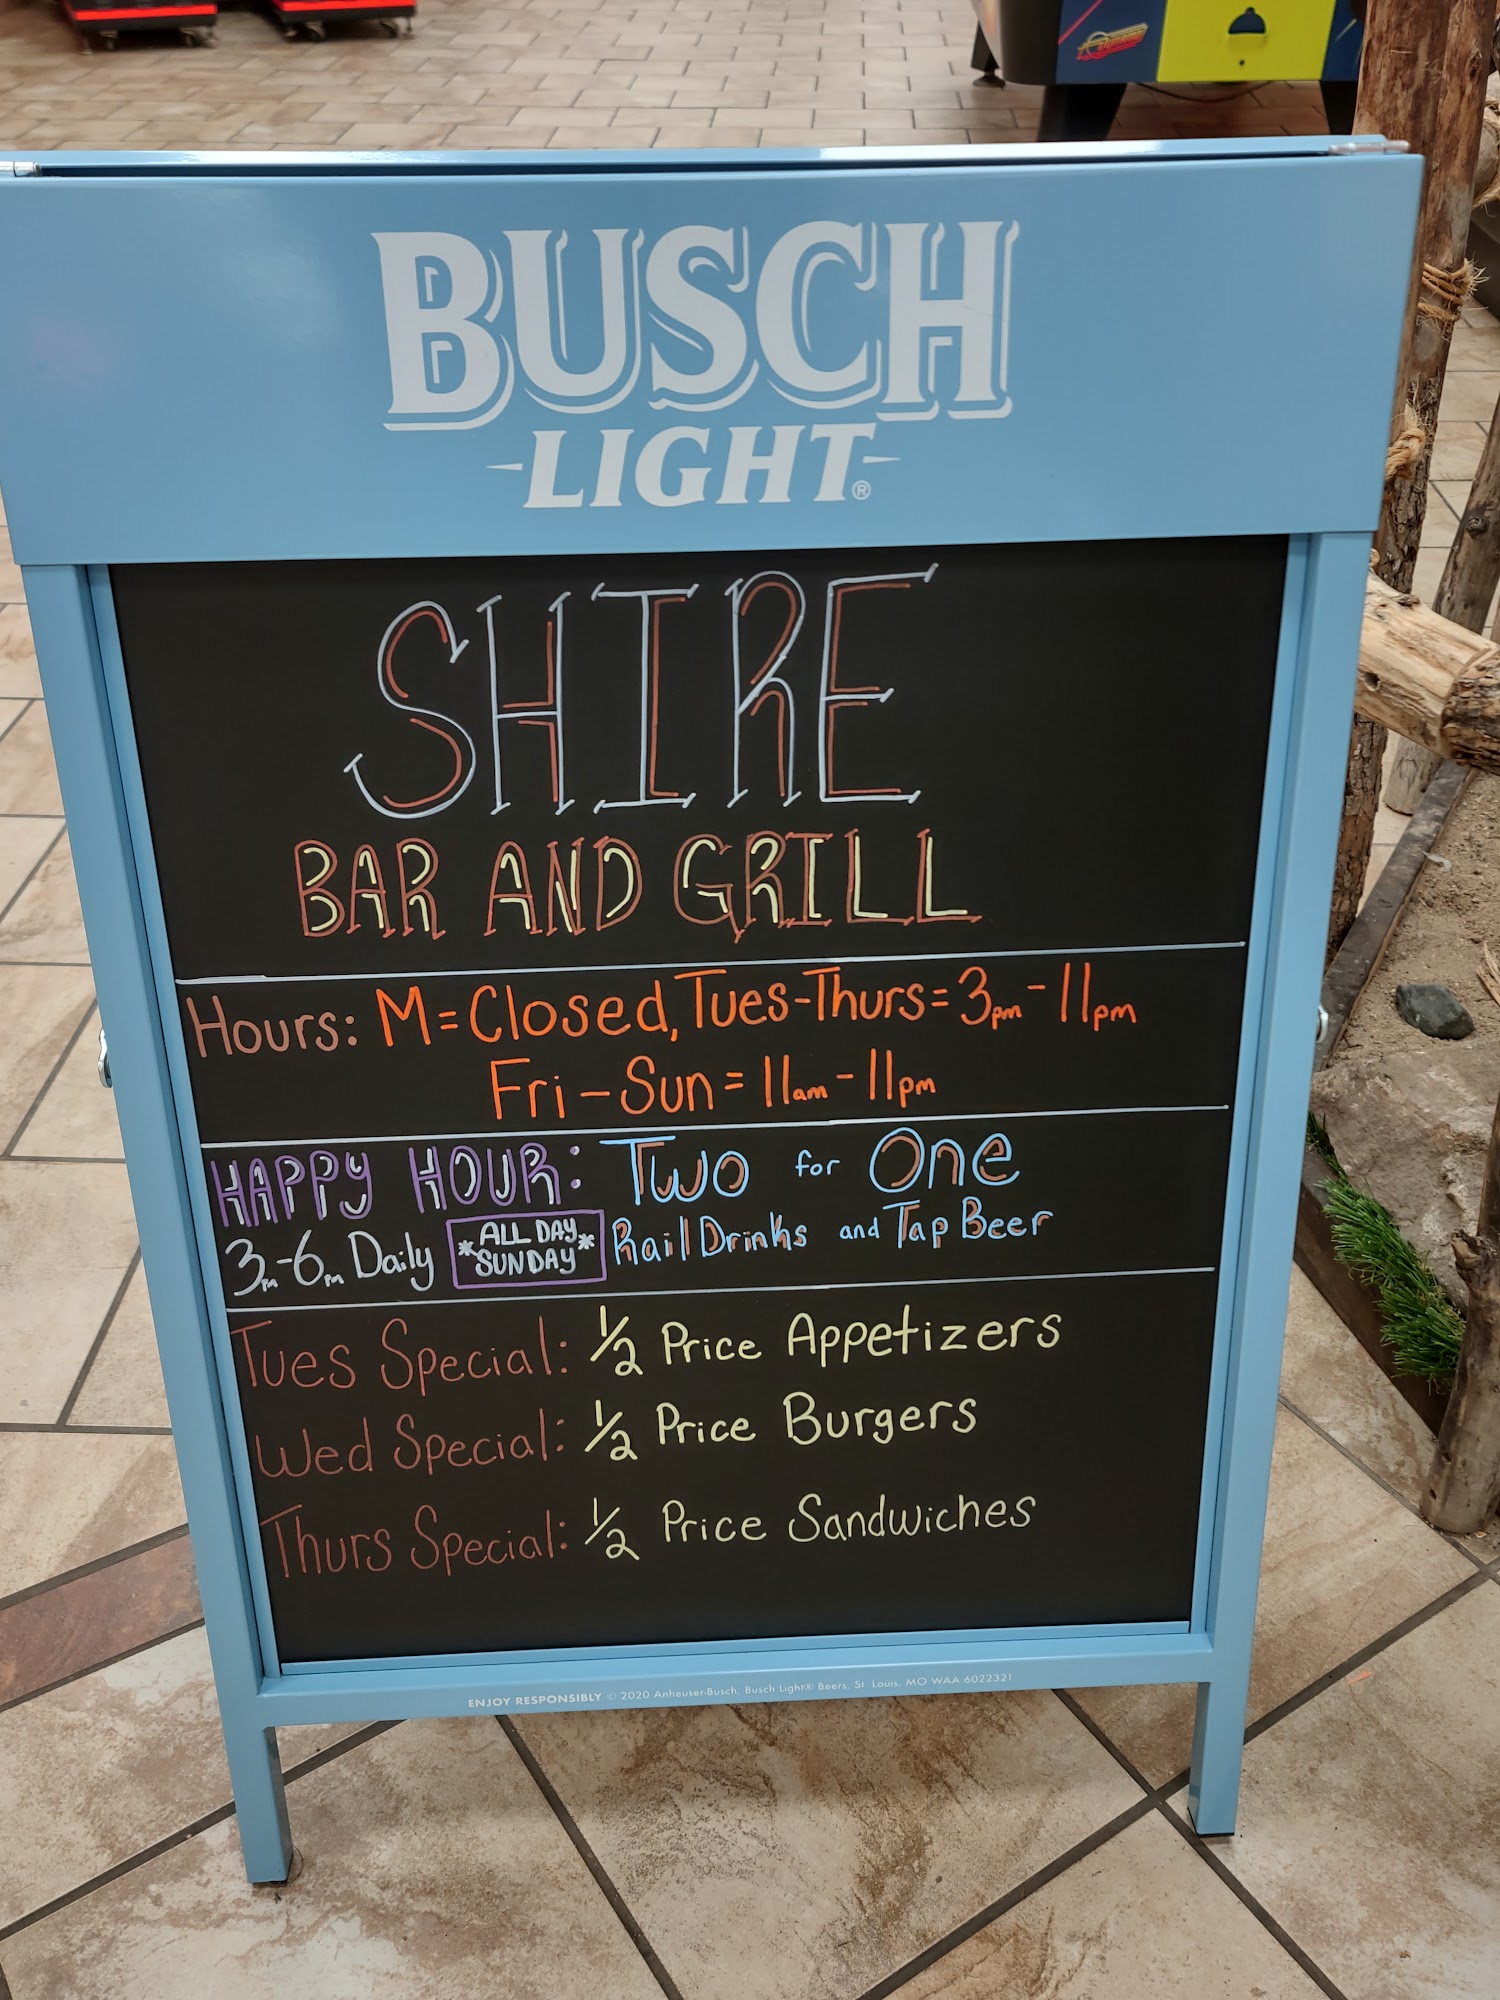 Dynamo
BUSCH
-LIGHT-®
SHIRE
BAR AND GRILL
Hours: M=Closed, Tues-Thurs=3pm-11pm
Fri-Sun=11am-11pm
HAPPY HOUR: Two for One
3pm-6pm Daily *ALL DAY SUNDAY* Rail Drinks and Tap Beer
Tues Special: 1/2 Price Appetizers
Wed Special: 1/2 Price Burgers
Thurs Special: 1/2 Price Sandwiches
ENJOY RESPONSIBLY © 2020 Anheuser-Busch, Busch Light® Beers, St. Louis, MO WAA 6022321